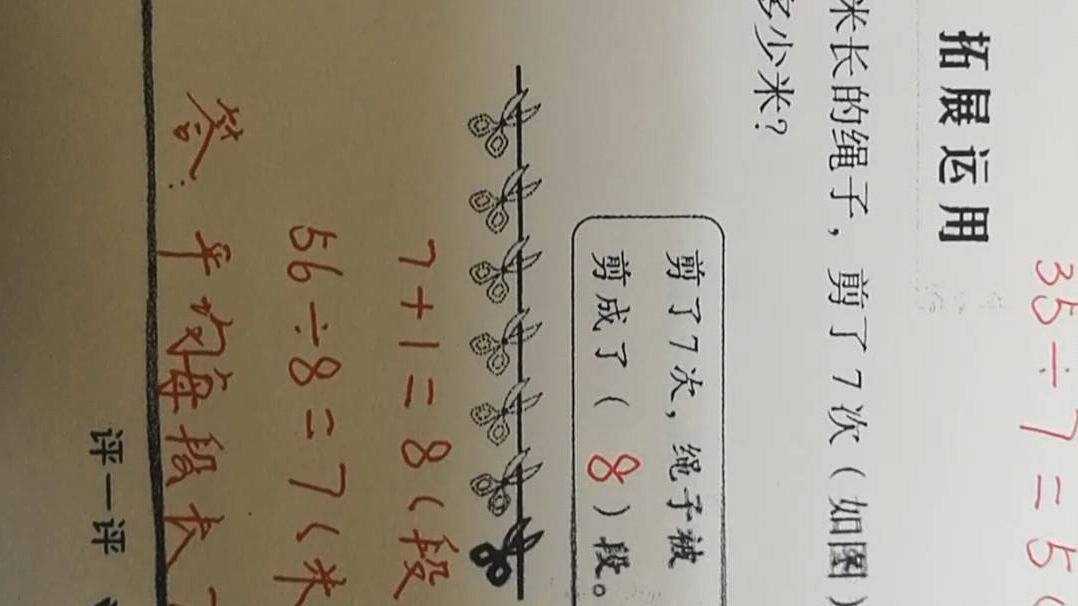 35÷7=5(
拓展运用
米长的绳子，剪了7次（如图）
多少米？
剪了7次，绳子被
剪成了（ 8 ）段。
7+1=8(段
56÷8=7(米
答：平均每段长7
评一评